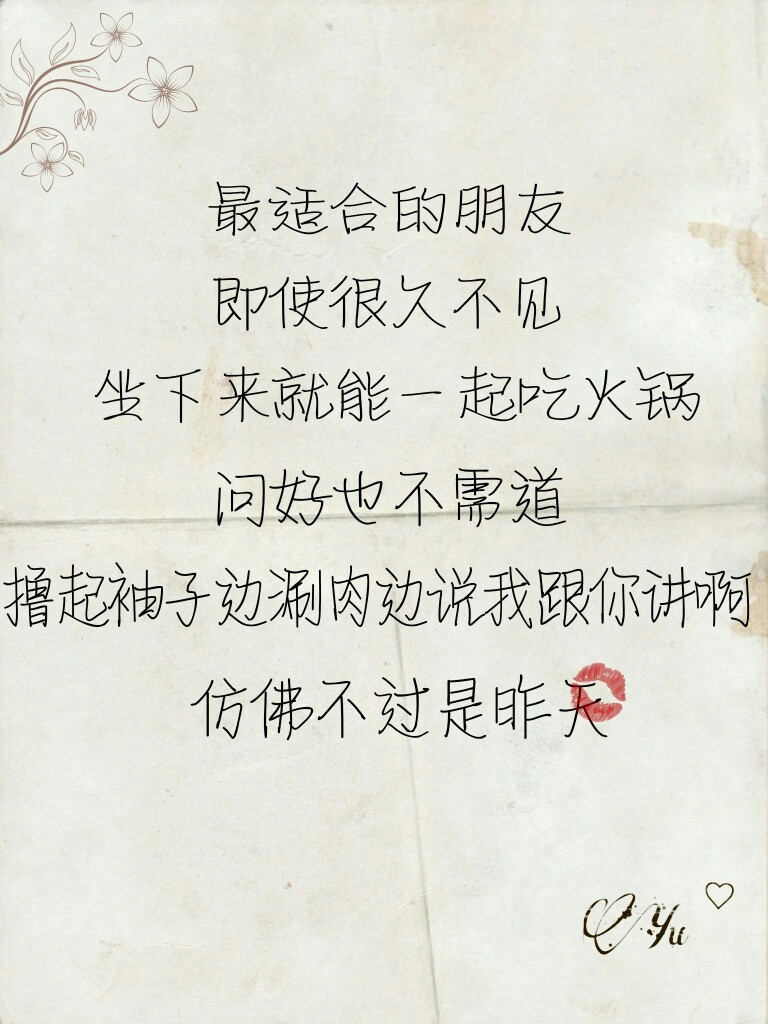 最适合的朋友
即使很久不见
坐下来就能一起吃火锅
问好也不需道
撸起袖子边涮肉边说我跟你讲啊
仿佛不过是昨天
Yu